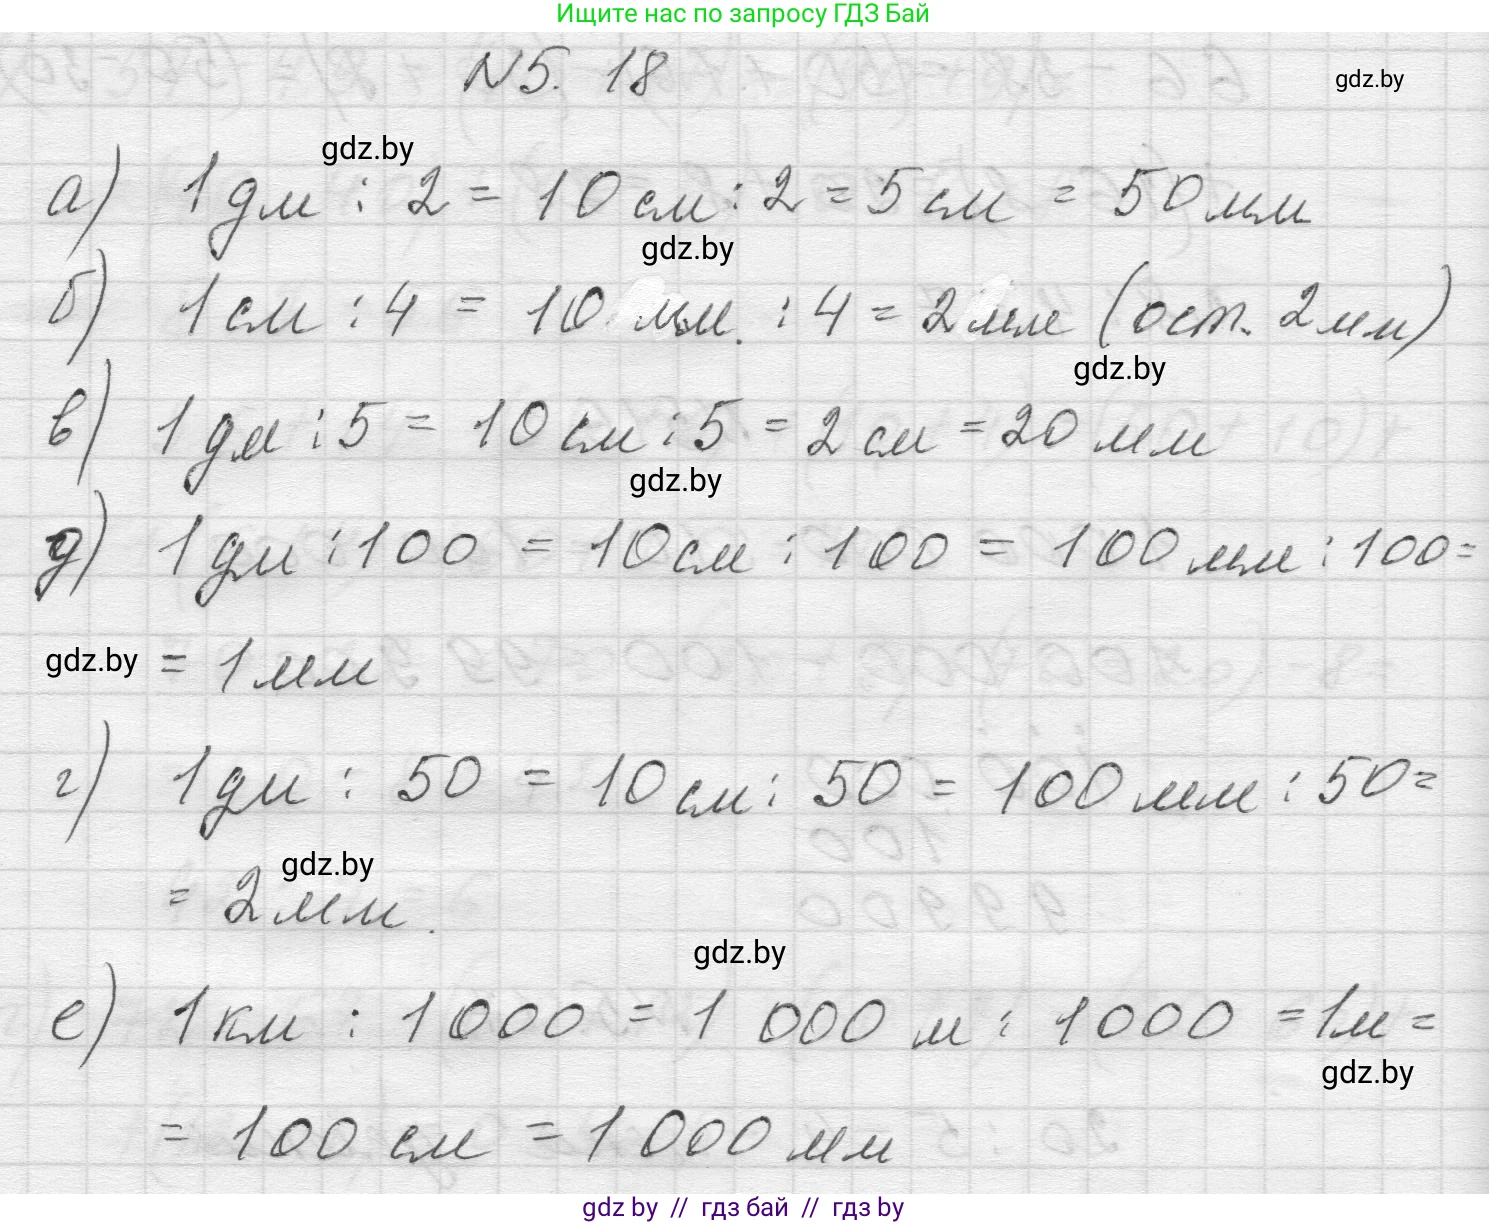 Ищите нас по запросу ГДЗ Бай
N5. 18
gdz.by
gdz.by
а) 1дм : 2 = 10см : 2 = 5см = 50мм
gdz.by
б) 1см : 4 = 10 мм. : 4 = 2мм (ост. 2мм)
gdz.by
в) 1дм : 5 = 10см : 5 = 2см = 20мм
gdz.by
д) 1дм : 100 = 10см : 100 = 100мм : 100 =
gdz.by
= 1мм
г) 1дм : 50 = 10см : 50 = 100мм : 50 =
gdz.by
= 2мм.
gdz.by
е) 1км : 1000 = 1 000 м : 1000 = 1м =
gdz.by
= 100 см = 1000 мм
gdz by // гдз бай // гдз by